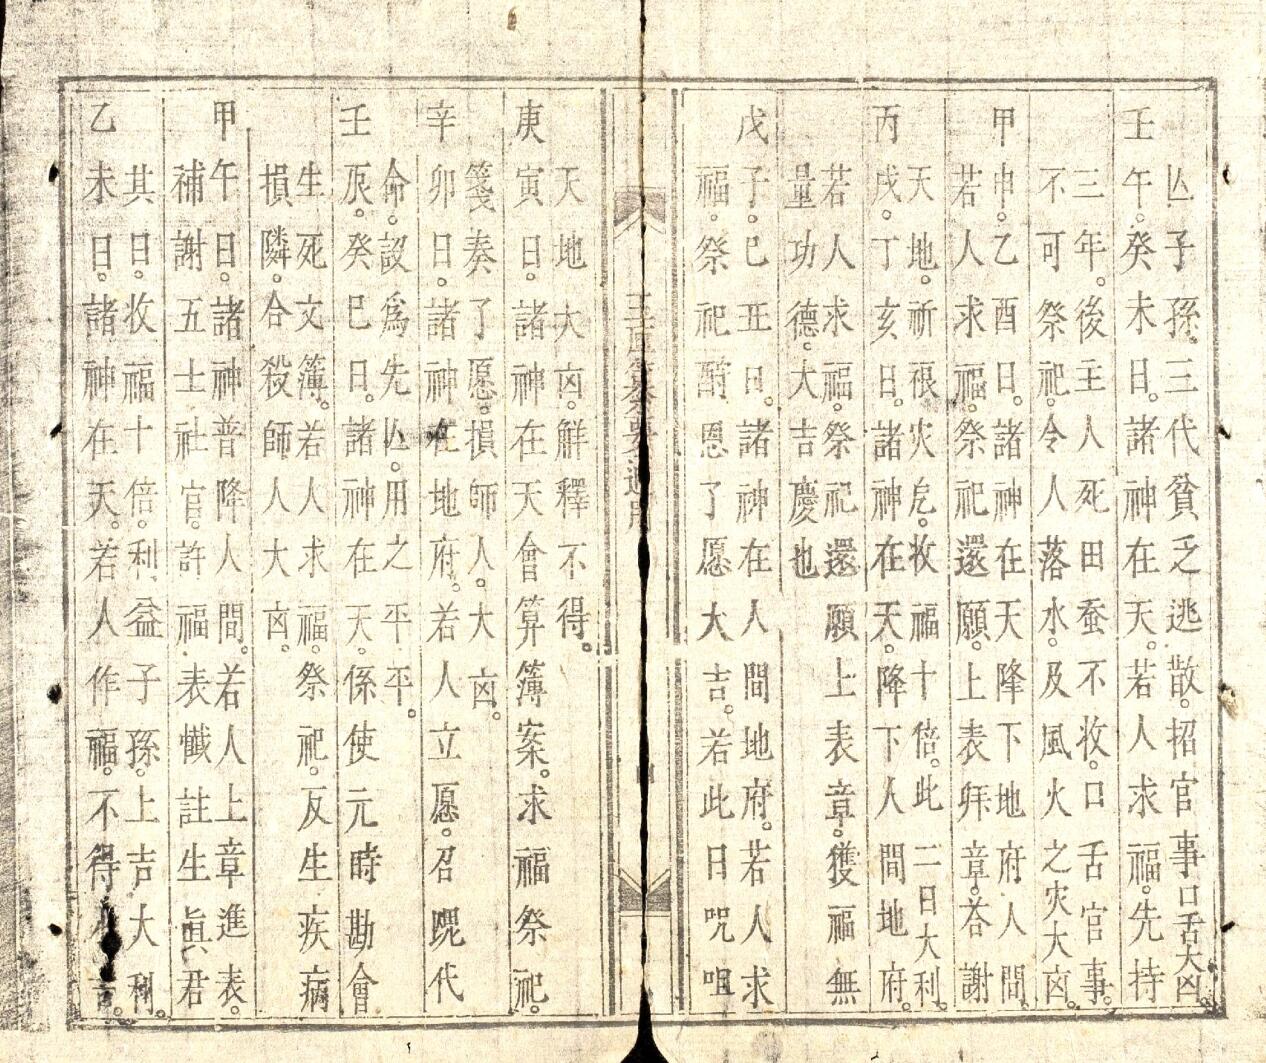 亾子孫。三代貧乏逃散。招官事口舌大凶。
壬午。癸未日。諸神在天。若人求福。先持
三年。後主人死田蚕不收。口舌官事。
不可祭祀。令人落水。及風火之灾大凶。
甲申。乙酉日。諸神在天降下地府人間。
若人求福。祭祀還願。上表拜章。荅謝
天地。祈禳灾危。收福十倍。此二日大利。
丙戌。丁亥日。諸神在天。降下人間地府。
若人求福。祭祀還願上表章。獲福無
量功德。大吉慶也
戊子。己丑日。諸神在人間地府。若人求
福。祭祀酧恩了愿大吉。若此日咒咀
天地大凶。解釋不得。
庚寅日。諸神在天會算簿案。求福祭祀。
箋奏了愿。損師人。大凶。
辛卯日。諸神在地府。若人立愿。召䰟代
命。設爲先亾。用之平平。
壬辰。癸巳日。諸神在天。係使元時勘會
生死文簿。若人求福。祭祀。反生疾病
損隣。合殺師人大凶。
甲午日。諸神普降人間。若人上章進表。
補謝五士社官。許福表懴註生眞君
其日。收福十倍。利益子孫。上吉大利。
乙未日。諸神在天。若人作福。不得